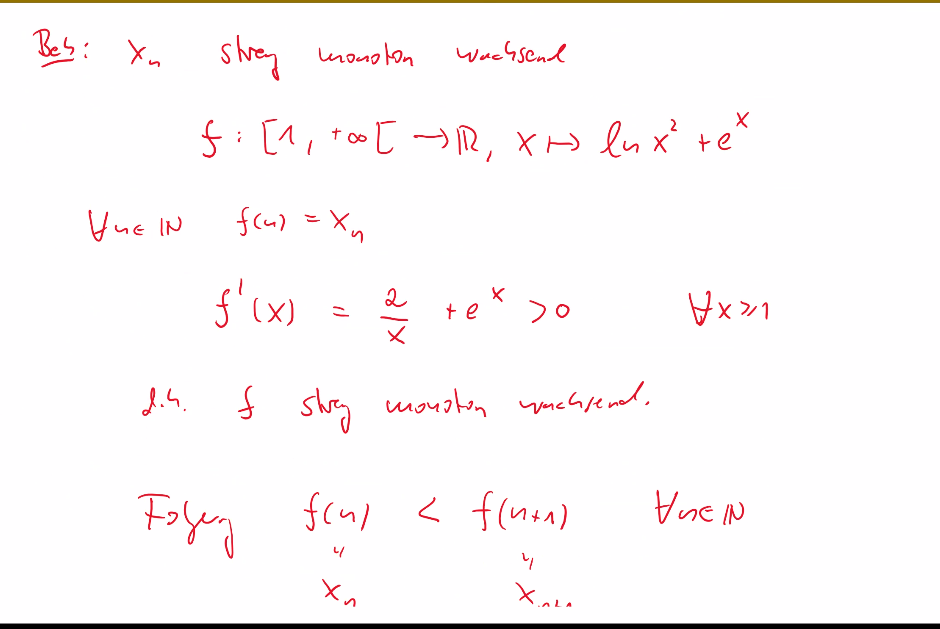 Beh: xₙ streng monoton wachsend
f : [1, +∞[ → ℝ, x ↦ ln x² + eˣ
∀n∈ℕ f(n) = xₙ
f'(x) = 2/x + eˣ > 0 ∀x ≥ 1
d.h. f streng monoton wachsend.
Folgerung f(n) < f(n+1) ∀n∈ℕ
= =
xₙ xₙ₊₁